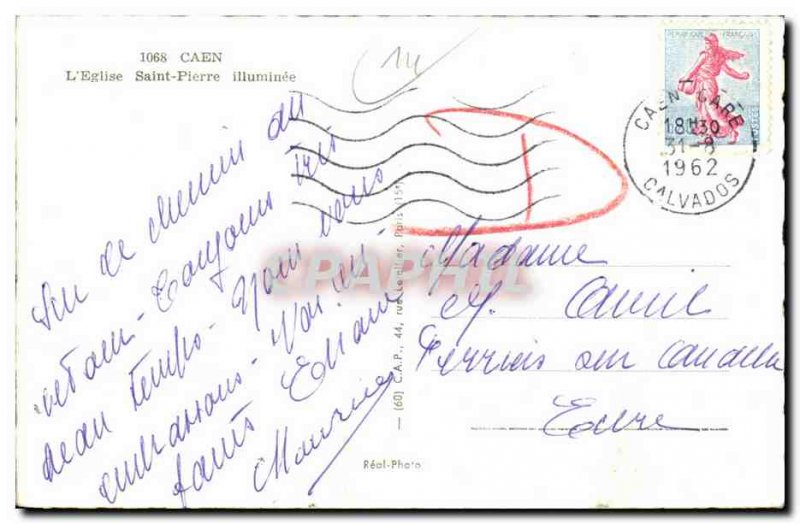 1068 CAEN
L'Eglise Saint-Pierre illuminée
14
REPUBLIQUE FRANÇAISE
POSTES
CAEN GARE
18H30
31-8
1962
CALVADOS
Sur le chemin du
retour - Toujours très
beau temps - Nous vous
embrassons - Vos en-
fants Eliane
Maurice
CPAPHIL
(60) C.A.P., 44, rue Letellier, Paris (15e)
Réal-Photo
Madame
Ferrières sur
Eure